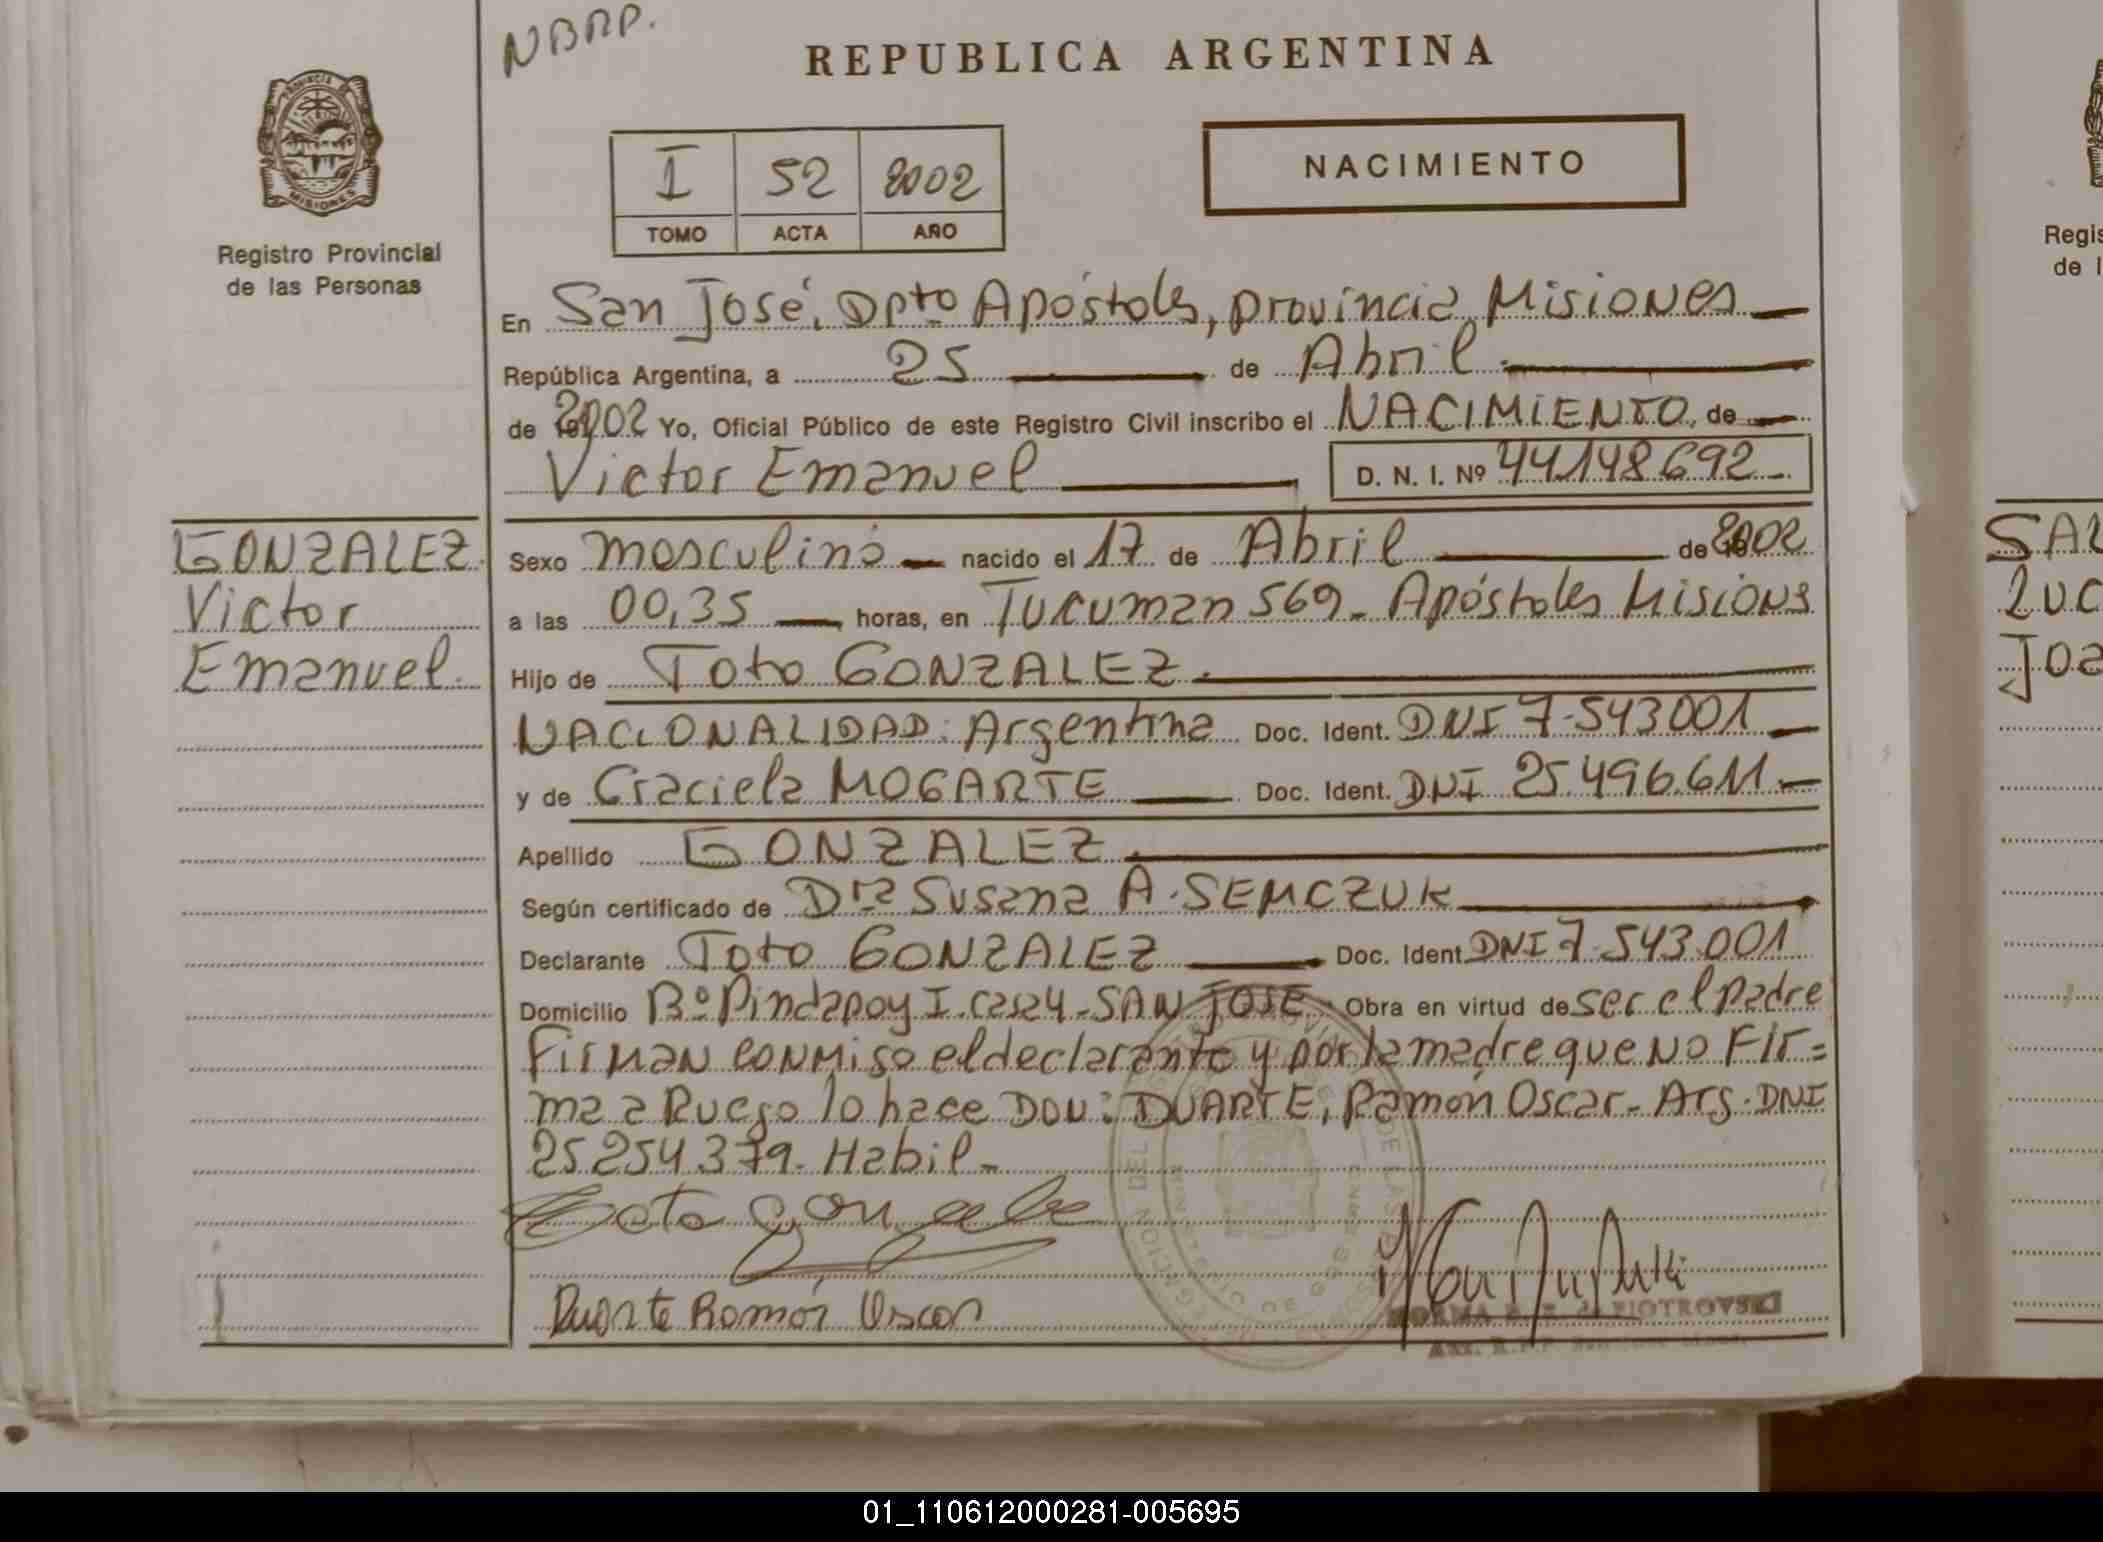 NBRP.
REPUBLICA ARGENTINA
PROVINCIA
MISIONES
Registro Provincial
de las Personas
I 52 2002
TOMO ACTA AÑO
NACIMIENTO
En San José, Dpto Apóstoles, provincia Misiones
República Argentina, a 25 de Abril
de 2002 Yo, Oficial Público de este Registro Civil inscribo el NACIMIENTO de
Victor Emanuel D. N. I. Nº 44148692
GONZALEZ
Victor
Emanuel
Sexo masculino nacido el 17 de Abril de 2002
a las 00,35 horas, en Tucuman 569 - Apóstoles Misiones
Hijo de Toto GONZALEZ
NACIONALIDAD: Argentina Doc. Ident. DNI 7.543001
y de Graciela MOGARTE Doc. Ident. DNI 25.496.611
Apellido GONZALEZ
Según certificado de Dra Susana A. SEMCZUK
Declarante Toto GONZALEZ Doc. Ident. DNI 7.543.001
Domicilio Bº Pindapoy I. casa 4 - SAN JOSE Obra en virtud de ser el padre
Firman conmigo el declarante y por la madre que no Fir=
ma a Ruego lo hace Don: DUARTE, Ramón Oscar - Arg. DNI
25.254.379. Habil -
Duarte Ramón Oscar
NORMA PIOTROVSKI
Regis
de l
SAL
Luc
Joa
01_110612000281-005695